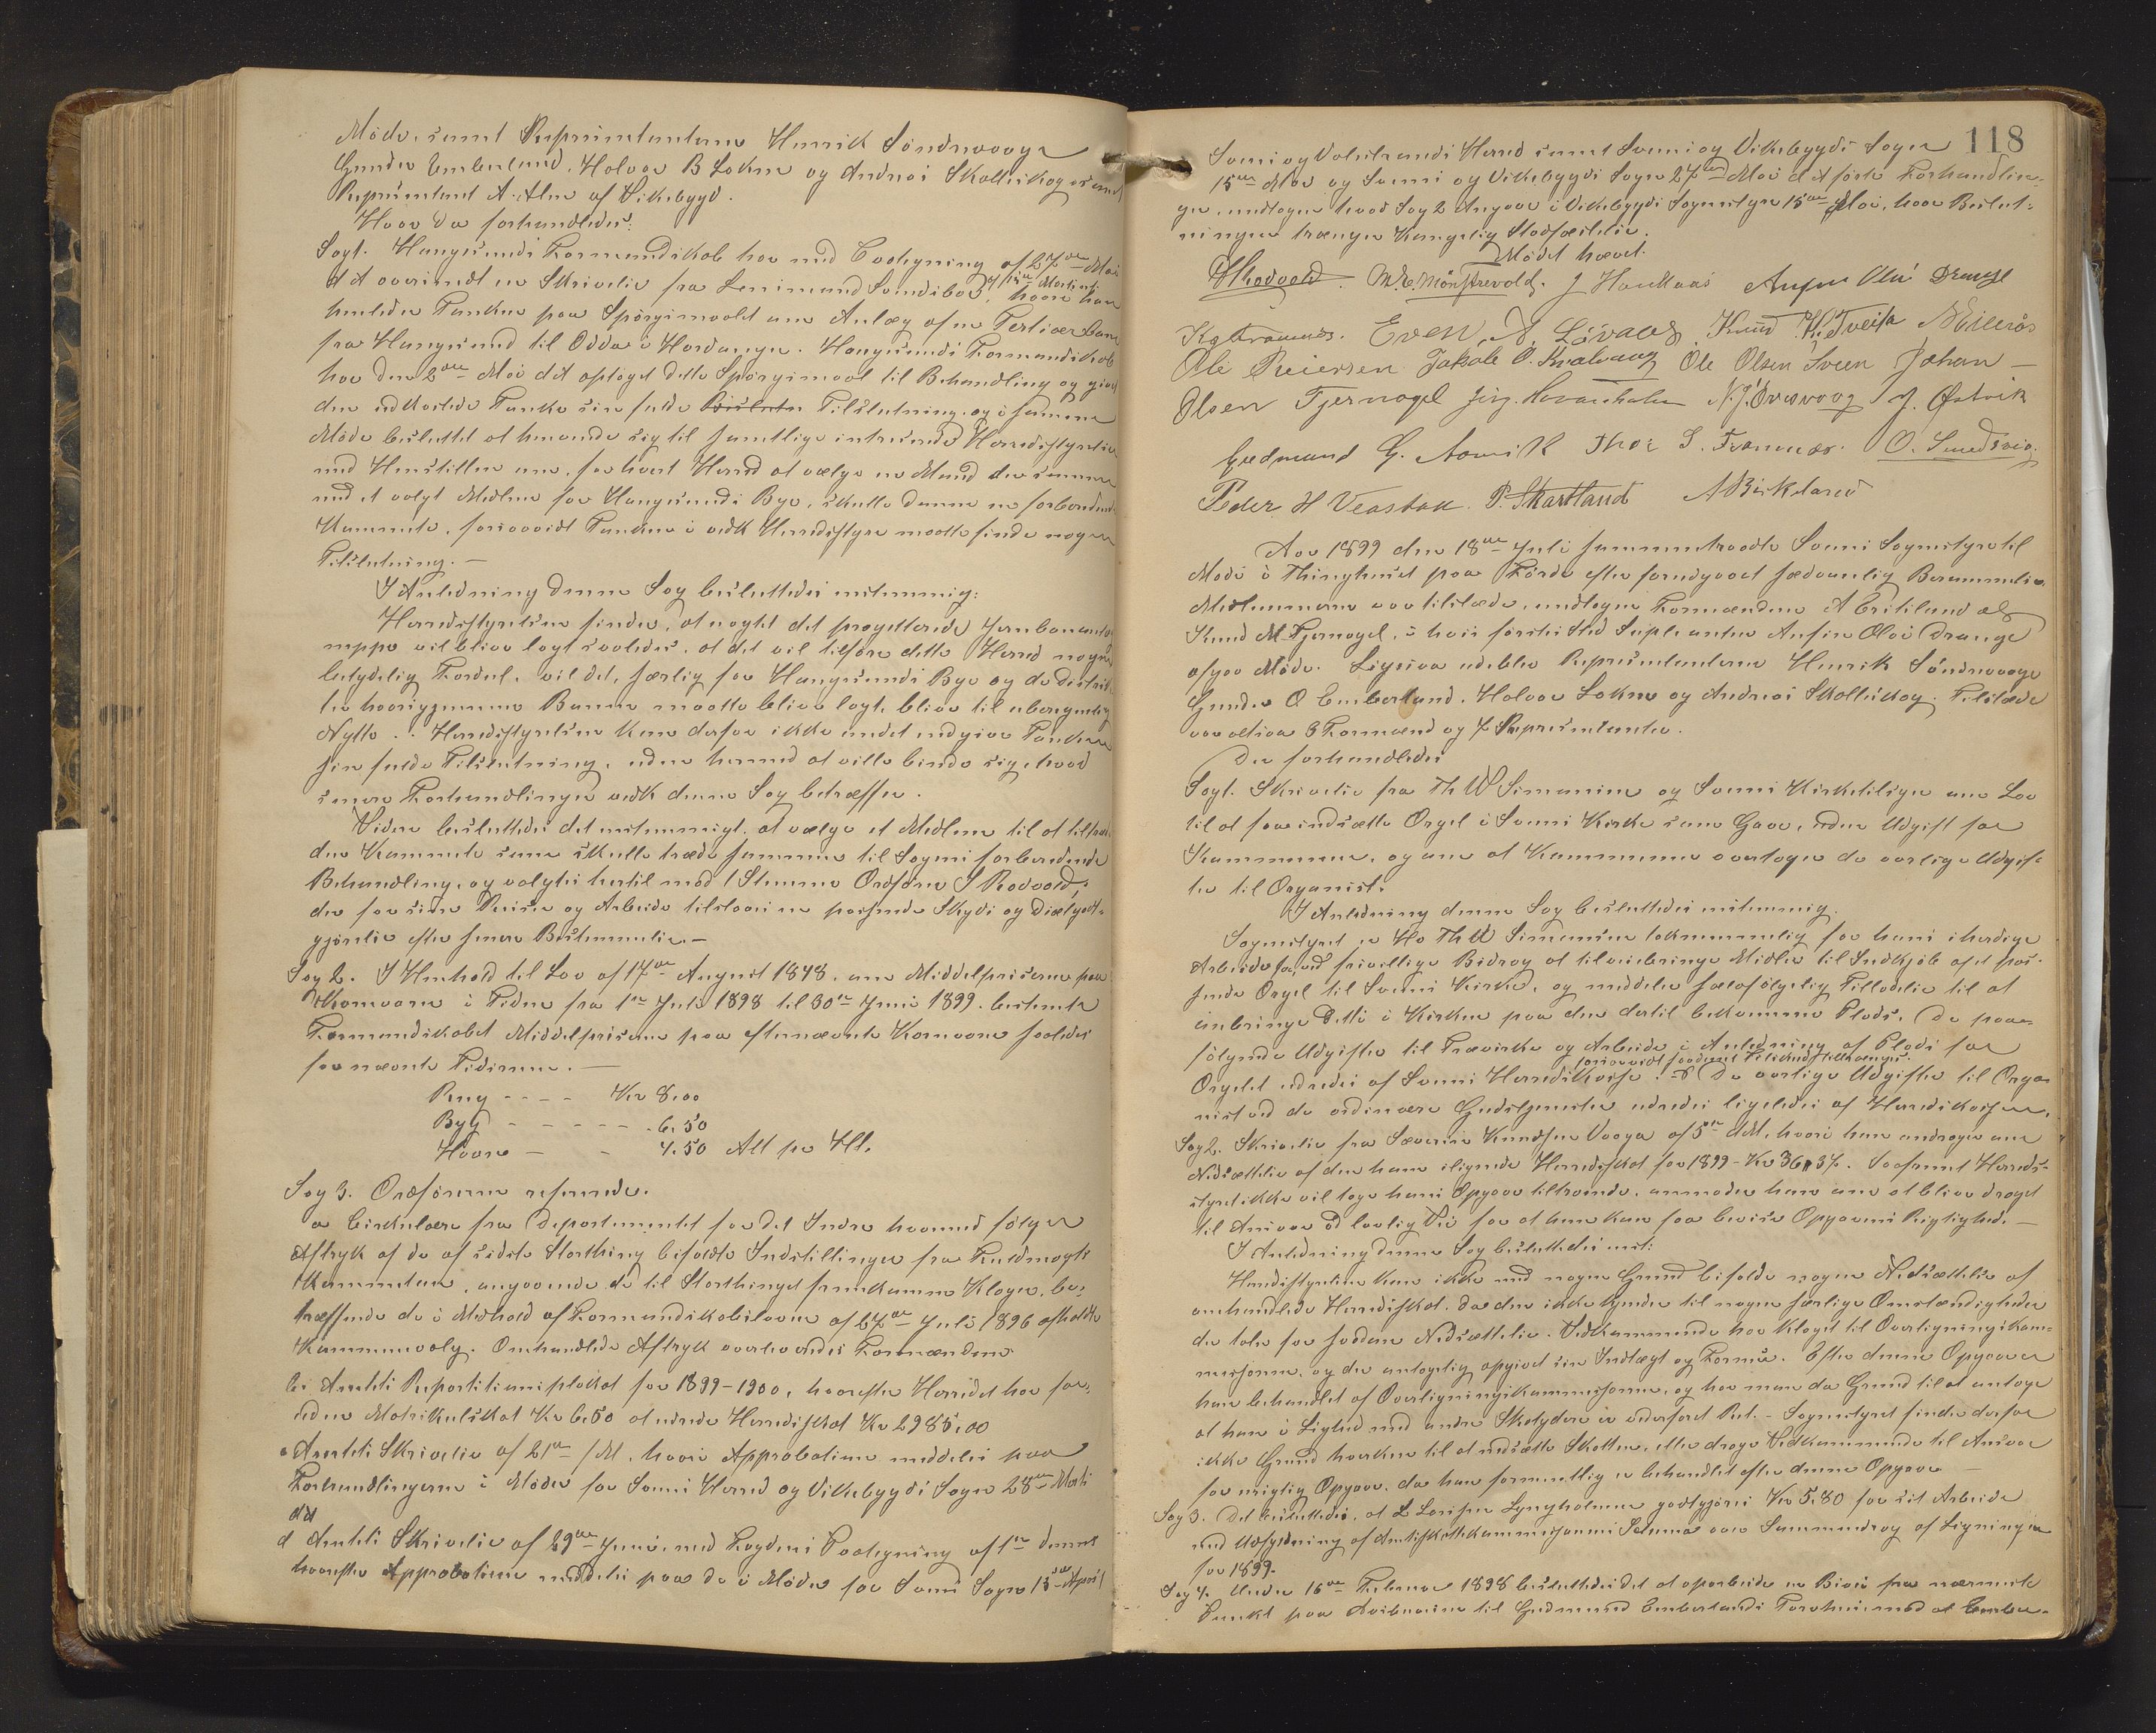 Møde, samt Repræsentanterne Henrik Söndrevaage
Gunder Emberland, Halvor B Lokna og Andreas Skolleskog samt
Repræsentant A. Alne af Vikebygd.
Hvor da forhandledes:
Sag 1. Haugesunds Formandskab har med Paategning af 27de Mai
d A oversendt en Skrivelse fra Lensmand Svendsbøe af 15de Marts, hvori han
henleder Tanken paa Spörgsmaalet om Anlæg af en Tertiærbane
fra Haugesund til Odda i Hardanger. Haugesunds Formandskab
har den 2den Mai d A optaget dette Spörgsmaal til Behandling og givet
den udkastede Tanke sin fulde Tilslutning, og i samme
Møde besluttet at henvende sig til samtlige interesserede Herredsstyrelser
med Henstillen om, for hvert Herred at vælge en Mand der sammen
med et valgt Medlem for Haugesunds By, skulle danne en forberedende
Kommite, forsaavidt Tanken i vedk Herredsstyre maatte finde nogen
Tilslutning. —
I Anledning denne Sag besluttedes enstemmig:
Herredsstyrelsen finder, at noget det projekterede Jernbaneanlæg
neppe vil blive lagt saaledes, at det vil tilføre dette Herred nogen
betydelig Fordel, vil det, særlig for Haugesunds By og de Distrik-
ter hvorigjennem Banen maatte blive lagt, blive til uberegnelig
Nytte. Herredsstyrelsen kan derfor ikke andet end give Tanken
sin fulde Tilslutning, uden hermed at ville binde sig, hvad
senere Forhandlinger vedk denne Sag betræffer.
Videre besluttedes det enstemmigt, at vælge et Medlem til at tiltræde
den Kommite som skulle træde sammen til Sagens forberedende
Behandling, og valgtes hertil mod 1 Stemme Ordförer I Rodvold,
der for sine Reiser og Arbeide tilstaaes en passende Skyds og Diætgodt-
gjörelse efter senere Bestemmelse. —
Sag 2. I Henhold til Lov af 17de August 1848, om Middelpriserne paa
Kornvarer i Tiden fra 1ste Juli 1898 til 30te Juni 1899, bestemte
Formandskabet Middelpriserne paa efternævnte Kornvarer saaledes
for nævnte Tidsrum. —
Rug - - - - Kr 8,00
Byg - - - - - - 6,50
Havre - - 4,50 Alt pr Hl.
Sag 3. Ordföreren refererede.
a Cirkulære fra Departementet for det Indre hvormed fölger
Aftryk af de af sidste Storthing bifaldte Indstillinger fra Fuldmagts
Kommiteen, angaaende de til Storthinget fremkomne Klager, be-
træffende de i Medhold af Formandskabsloven af 27de Juli 1896 afholdte
Kommunevalg. Omhandlede Aftryk overleveredes Formændene
b. Amtets Repartitionsplakat for 1899-1900, hvorefter Herredet har for-
uden Matrikulskat Kr 6,50 at udrede Herredsskat Kr 2985,00
c Amtets Skrivelse af 21de f M, hvori Approbation meddeles paa
Forhandlingerne i Møder for Sveens Herred og Vikebygds Sogn 28de Marts
d A
d Amtets Skrivelse af 29de Juni, med Fogdens Paategning af 1ste denne
hvorefter Approbation meddeles paa de i Møder for Sveens Sogn 13de April
118
Sveens og Valestrands Herred samt Sveens og Vikebygds Sogn
15de Mai og Sveens og Vikebygds Sogn 27de Mai d A förte Forhandlin-
ger, undtagen hvad Sag 2 Angaar i Vikebygds Sognestyre 15de Mai, hvor Beslut-
ningen trænger Kongelig Stadfæstelse.
Mødet hævet.
I Rodvold. M. C. Mønstrevold. J Haukaas Anfin Olai Drange
K. Even A. Lövaas. Knud H. Tveita
Ole Reiersen Jakob O. Kvalvaag Ole Olsen Sveen Johan —
Olsen Tjernagel N. J. Ovrevaag J. Østvik
Gudmund G. Aarvik Thor S. O. Smedsvig.
Peder H Veastad. P. Skartland A Birkeland
Aar 1899 den 18de Juli sammentraadte Sveens Sognestyre til
Møde i Thinghuset paa Förde efter forudgaaet sædvanlig Berammelse.
Medlemmerne var tilstede, undtagen Formændene A Eritsland og
Knud M. Tjernagel, i hvis førstes Sted Suppleanten Anfin Olai Drange
afgav Møde. Ligesaa udeblev Repræsentanterne Henrik Söndrevaage
Gunder O Emberland, Halvor Lokna og Andreas Skolleskog. Tilstede
var altsaa 8 Formænd og 7 Repræsentanter.
Der forhandledes
Sag 1. Skrivelse fra Th W Simonsen og Sveens Kirketilsyn om Lov
til at faa indsætte Orgel i Sveens Kirke som Gave, uden Udgift for
Kommunen, og om at Kommunen overtager de aarlige Udgif-
ter til Organist.
I Anledning denne Sag besluttedes enstemmig.
Sognestyret er Hr Th W Simonsen taknemmelig for hans ihærdige
Arbeide for, ved frivillige Bidrag at tilveiebringe Midler til Indkjöb af et pas-
sende Orgel til Sveens Kirke, og meddeler selvfölgelig Tilladelse til at
anbringe dette i Kirken paa den dertil bekvemme Plads. De paa-
fölgende Udgifter til Træværk og Arbeide i Anledning af Plads for
Orgelet udredes af Sveens Herredskasse forsaavidt saadant Tilskud tiltrænges. De aarlige Udgifter til Orga-
nist ved de ordinære Gudstjenester udredes ligeledes af Herredskassen.
Sag 2. Skrivelse fra Severin Knudsen Vaage af 5te d M, hvori han andrager om
Nedsættelse af den ham ilignede Herredsskat for 1899 - Kr 36,37. Saafremt Herreds-
styret ikke vil tage hans Opgave tiltroende, anmoder han om at blive draget
til Ansvar ad lovlig Vei for at han kan faa bevise Opgavens Rigtighed. —
I Anledning denne Sag besluttedes enst:
Herredsstyrelsen kan ikke med nogen Grund bifalde nogen Nedsættelse af
omhandlede Herredsskat, da den ikke kjender til nogen særlige Omstændigheder
der taler for saadan Nedsættelse. Vedkommende har klaget til Overligningskom-
missionen, og der antagelig opgivet sin Indtægt og Formue. Efter denne Opgave er
han behandlet af Overligningskommissionen, og har man da Grund til at antage
at han i Lighed med andre Skatydere er vederfaret Ret. - Sognestyret finder derfor
ikke Grund hverken til at nedsætte Skatten, eller drage Vedkommende til Ansvar
for urigtig Opgave, da han formentlig er behandlet efter denne Opgave —
Sag 3. Det besluttedes, at L Larsen Lyngholmen godtgjöres Kr 5,80 for sit Arbeide
med Udfyldning af Amtsskattekommissionens Skema over Sammendrag af Ligningen
for 1899.
Sag 4. Under 16de Februar 1898 besluttedes det at oparbeide en Bivei fra nærmeste
Punkt paa Hovedveien til Gudmund Emberlands mod at Ember-